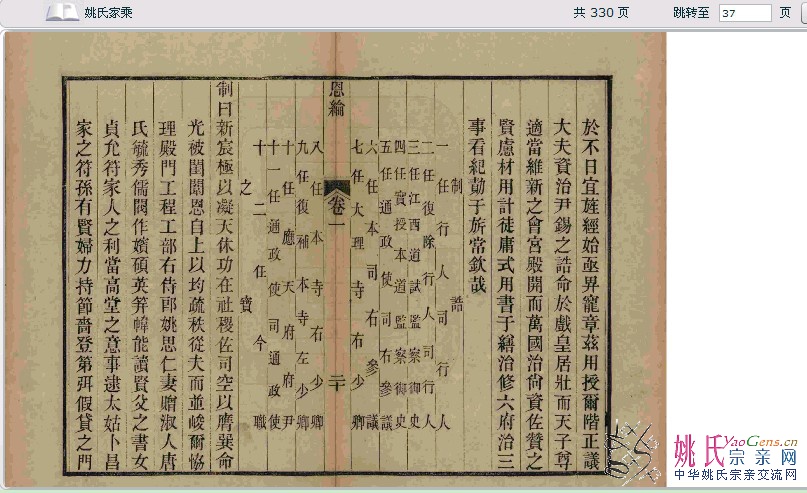 姚氏家乘
共 330 页
跳转至 37 页
於不日宜旌經始亟畀寵章茲用授爾階正議
大夫資治尹錫之誥命於戲皇居壯而天子尊
適當維新之會宮殿開而萬國治尙資佐贊之
賢慮材用計徒庸式用書于繕治修六府治三
事看紀勣于旂常欽哉
制 誥
一任行人司行人
二任復除行人司行人
三任江西道試監察御史
四任實授本道監察御史
五任通政使司右參議
六任本司右參議
七任大理寺右少卿
恩綸
卷一
二十
八任本寺右少卿
九任復補本寺左少卿
十任應天府府尹
十一任通政使司通政使
十二任今職
之寶
制曰新宸極以凝天休功在社稷佐司空以膺巽命
光被閨閫恩自上以均疏秩從夫而並峻爾協
理殿門工程工部右侍郎姚思仁妻贈淑人唐
氏毓秀儒閥作嬪碩英筓幃能讀賢父之書女
貞允符家人之利當高堂之意事逮太姑卜昌
家之符孫有賢婦力持節嗇登第弭假貸之門
姚氏YaoGens.cn
宗亲网
中华姚氏宗亲交流网